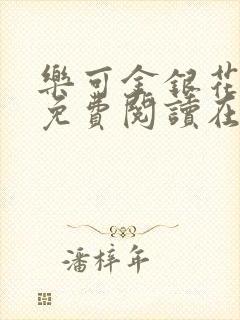 樂可金銀花
免費閱讀在
潘梓年